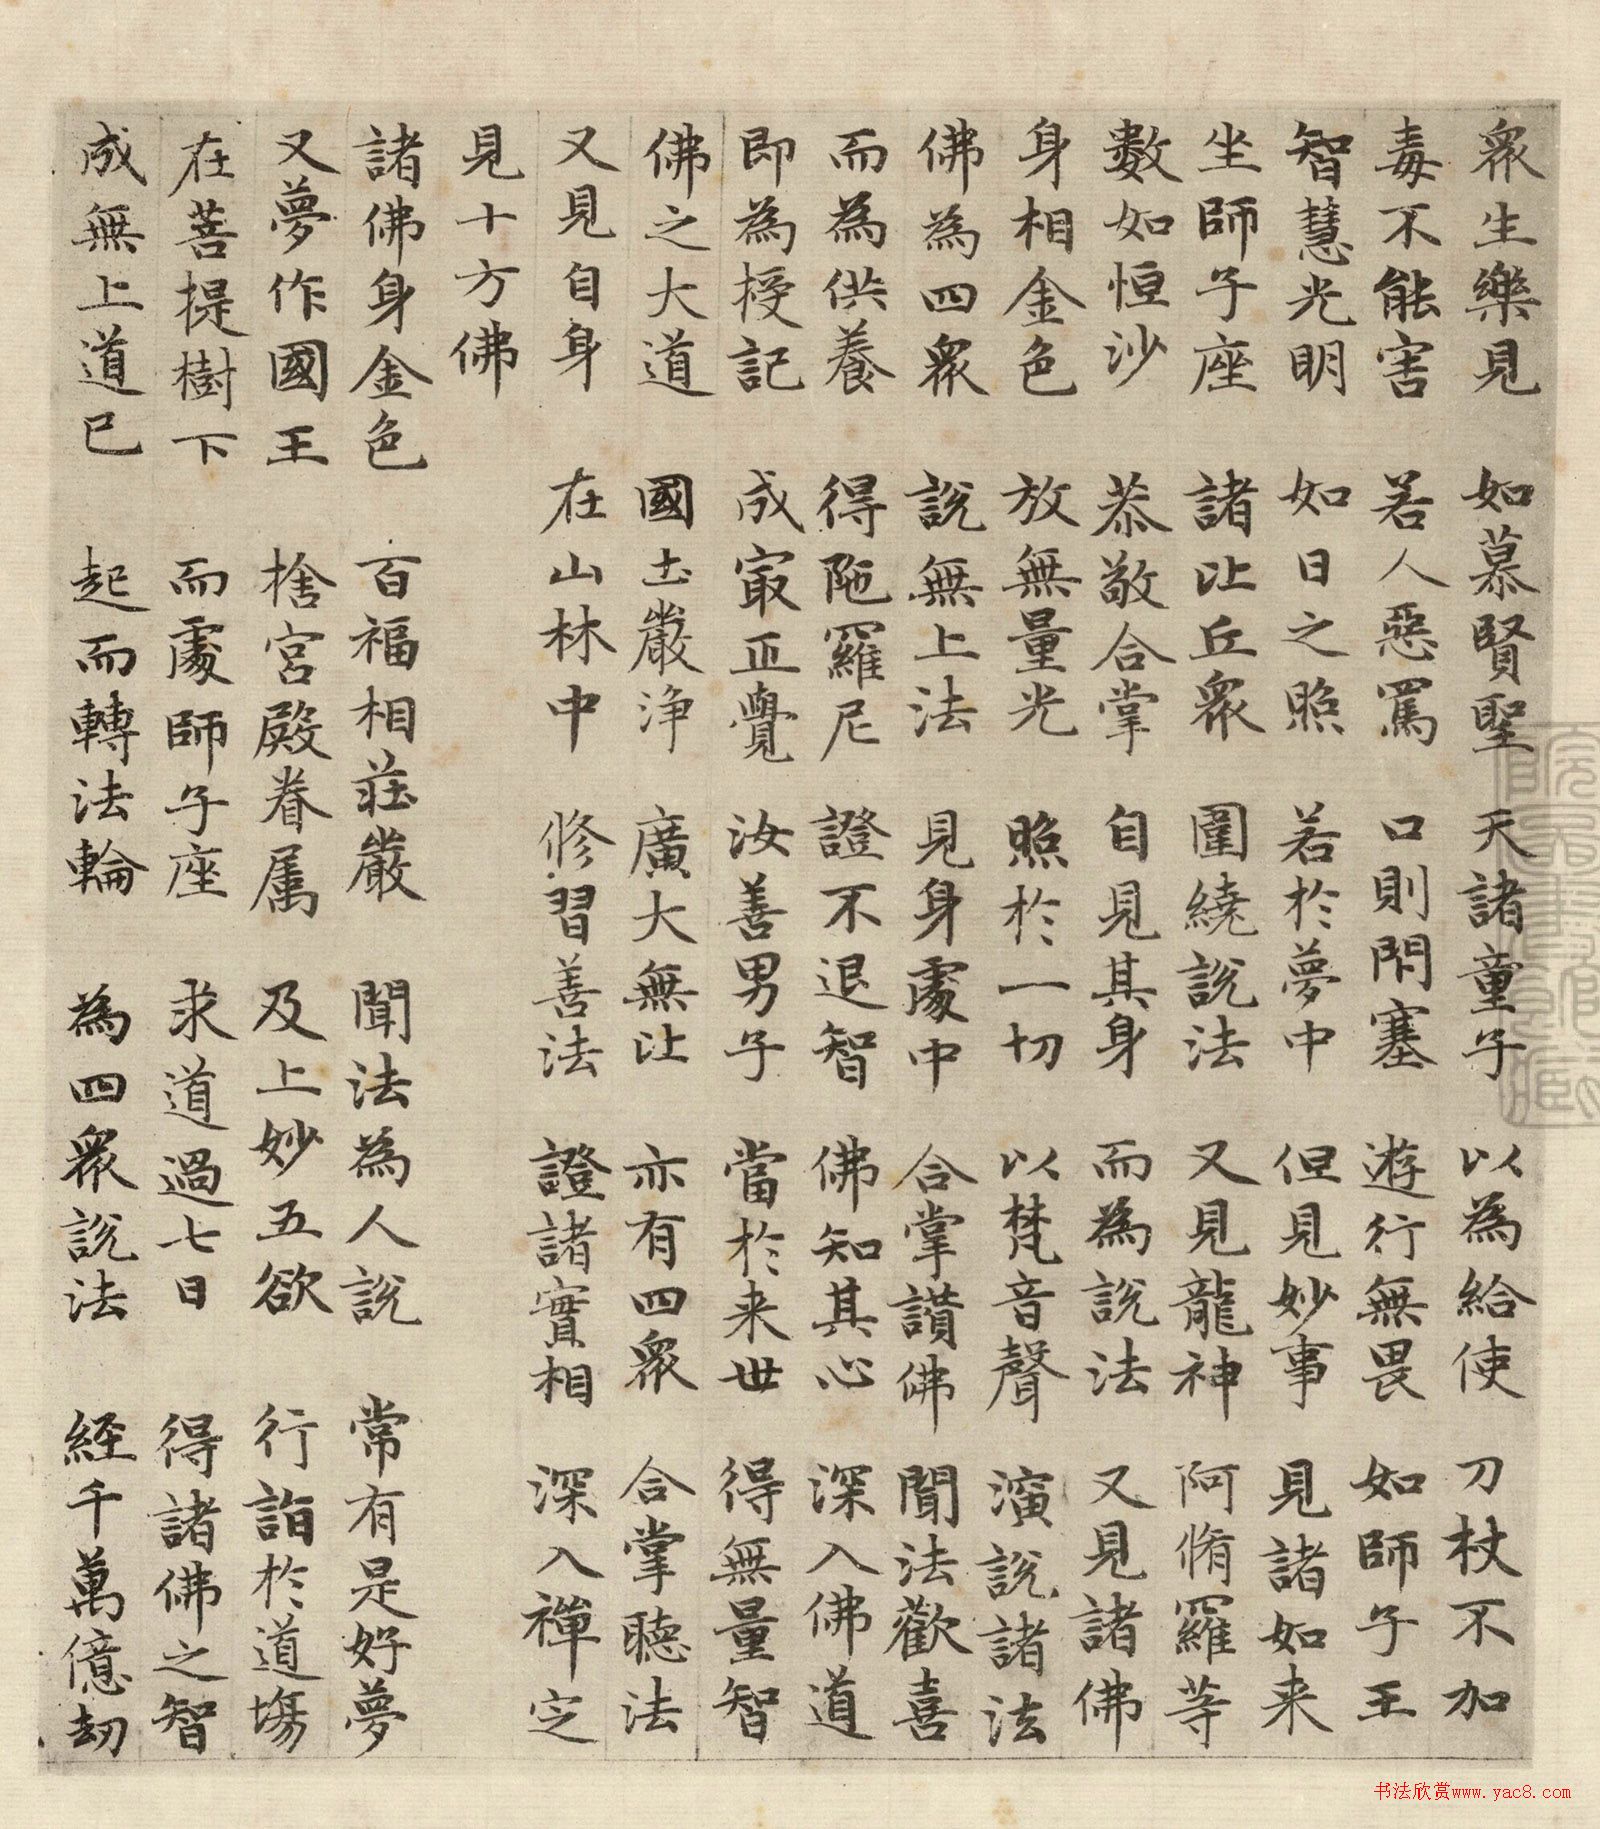 衆生樂見 如慕賢聖 天諸童子 以為給使 刀杖不加
毒不能害 若人惡罵 口則閇塞 遊行無畏 如師子王
智慧光明 如日之照 若於夢中 但見妙事 見諸如来
坐師子座 諸比丘衆 圍繞說法 又見龍神 阿脩羅等
數如恒沙 恭敬合掌 自見其身 而為說法 又見諸佛
身相金色 放無量光 照於一切 以梵音聲 演說諸法
佛為四衆 說無上法 見身處中 合掌讚佛 聞法歡喜
而為供養 得陁羅尼 證不退智 佛知其心 深入佛道
即為授記 成㝡正覺 汝善男子 當於来世 得無量智
佛之大道 國土嚴淨 廣大無比 亦有四衆 合掌聽法
又見自身 在山林中 修習善法 證諸實相 深入禪定
見十方佛
諸佛身金色 百福相莊嚴 聞法為人說 常有是好夢
又夢作國王 捨宮殿眷属 及上妙五欲 行詣於道場
在菩提樹下 而處師子座 求道過七日 得諸佛之智
成無上道已 起而轉法輪 為四衆說法 経千萬億劫
书法欣赏www.yac8.com